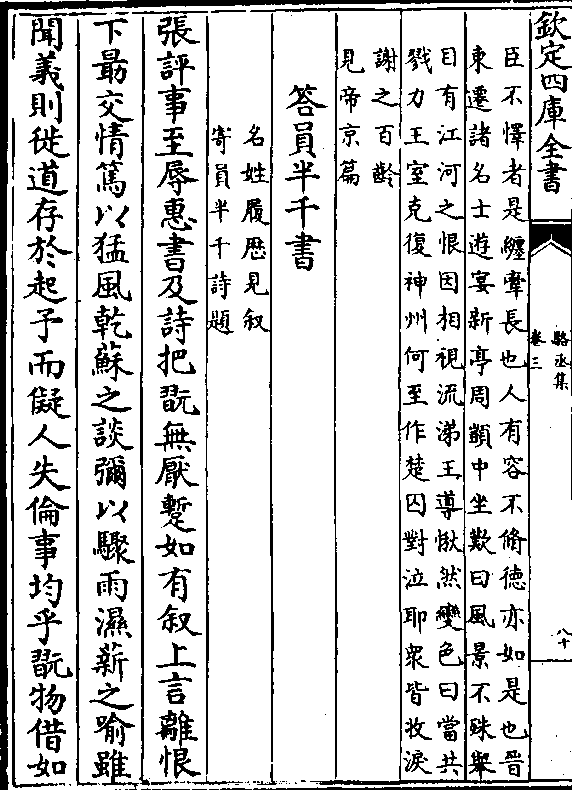 欽定四庫全書
駱丞集
卷三
八十
臣不懌者是纏牽長也人有容不脩德亦如是也晉
東遷諸名士遊宴新亭周顗中坐歎曰風景不殊舉
目有江河之恨因相視流涕王導愀然變色曰當共
戮力王室克復神州何至作楚囚對泣耶衆皆收淚
謝之百齡
見帝京篇
答員半千書
名姓履歷見叙
寄員半千詩題
張評事至辱惠書及詩把翫無厭蹔如有叙上言離恨
下最交情篤以猛風乾蘇之談彌以驟雨濕薪之喻雖
聞義則從道存於起予而儗人失倫事均乎翫物借如